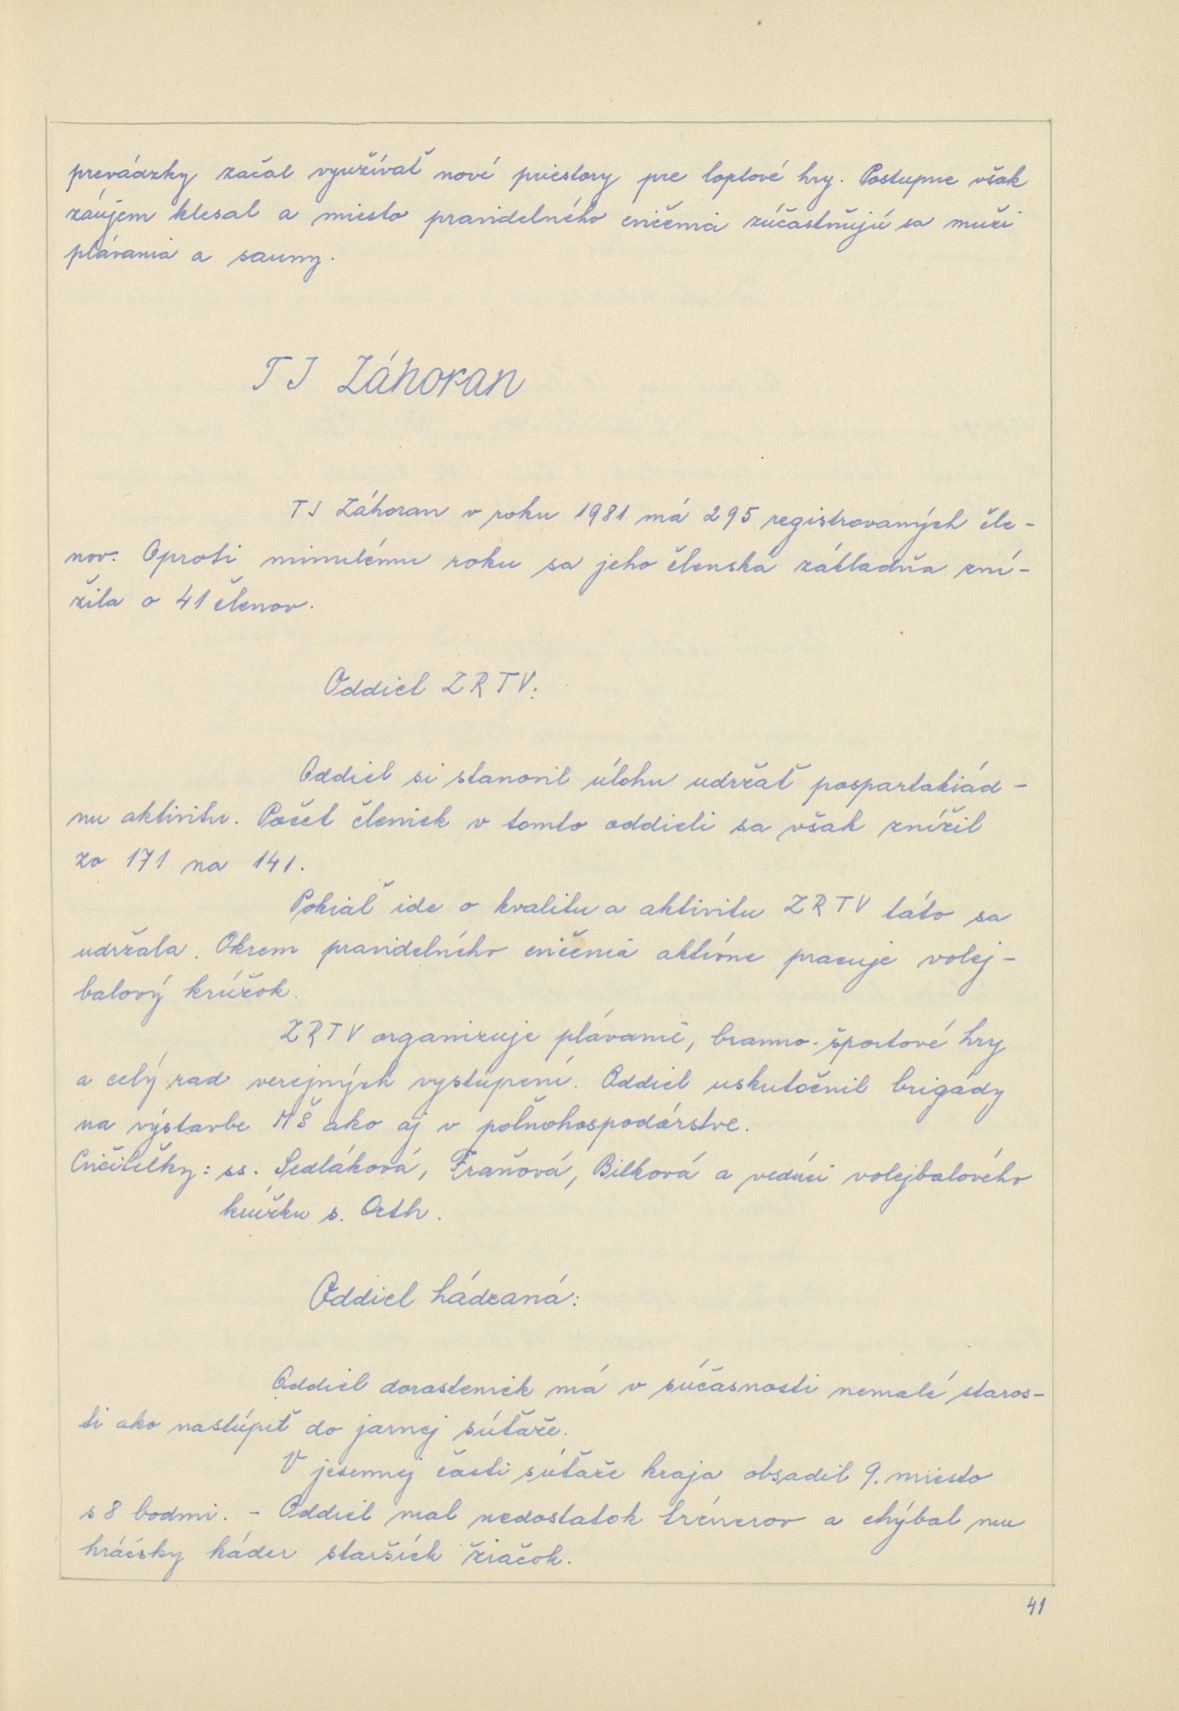 prevádzky začal využívať nové priestory pre loptové hry. Postupne však
záujem klesal a miesto pravidelného cvičenia zúčastňujú sa muži
plávania a sauny.
TJ Záhoran
TJ Záhoran v roku 1981 má 295 registrovaných čle-
nov. Oproti minulému roku sa jeho členská základňa zní-
žila o 41 členov.
Oddiel ZRTV:
Oddiel si stanovil úlohu udržať pospartakiád-
nu aktivitu. Počet členiek v tomto oddieli sa však znížil
zo 171 na 141.
Pokiaľ ide o kvalitu a aktivitu ZRTV táto sa
udržala. Okrem pravidelného cvičenia aktívne pracuje volej-
balový krúžok.
ZRTV organizuje plávanie, branno-športové hry
a celý rad verejných vystúpení. Oddiel uskutočnil brigády
na výstavbe MŠ ako aj v poľnohospodárstve.
Cvičiteľky: ss. Sedláková, Fraňová, Bilková a vedúci volejbalového
krúžku s. Orth.
Oddiel hádzaná:
Oddiel dorasteniek má v súčasnosti nemalé staros-
ti ako nastúpiť do jarnej súťaže.
V jesennej časti súťaže kraja obsadil 9. miesto
s 8 bodmi. - Oddiel mal nedostatok trénerov a chýbal mu
hráčsky káder starších žiačok.
41